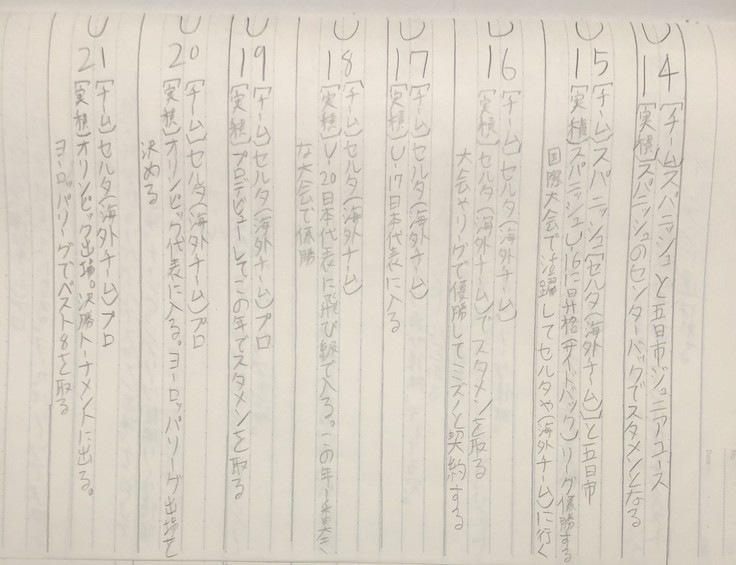 14
【チーム】スパニッシュと五日市ジュニアユース
【実積】スパニッシュのセンターバックでスタメンとなる
15
【チーム】スパニッシュ【セルタ(海外チーム)】と五日市
【実積】スパニッシュU-16に昇格(サイドバック)リーグ優勝する
国際大会で活躍してセルタや(海外チーム)に行く
16
【チーム】セルタ(海外チーム)
【実積】セルタ(海外チーム)でスタメンを取る
大会やリーグで優勝してミズノと契約する
17
【チーム】セルタ(海外チーム)
【実積】U-17日本代表に入る
18
【チーム】セルタ(海外チーム)
【実積】U-20日本代表に飛び級で入る。この年
な大会で優勝
19
【チーム】セルタ(海外チーム)プロ
【実積】プロデビューしてこの年でスタメンを取る
20
【チーム】セルタ(海外チーム)プロ
【実積】オリンピック代表に入る。ヨーロッパリーグ出場て
決める
21
【チーム】セルタ(海外チーム)プロ
【実積】オリンピック出場。決勝トーナメントに出る。
ヨーロッパリーグでベスト8を取る